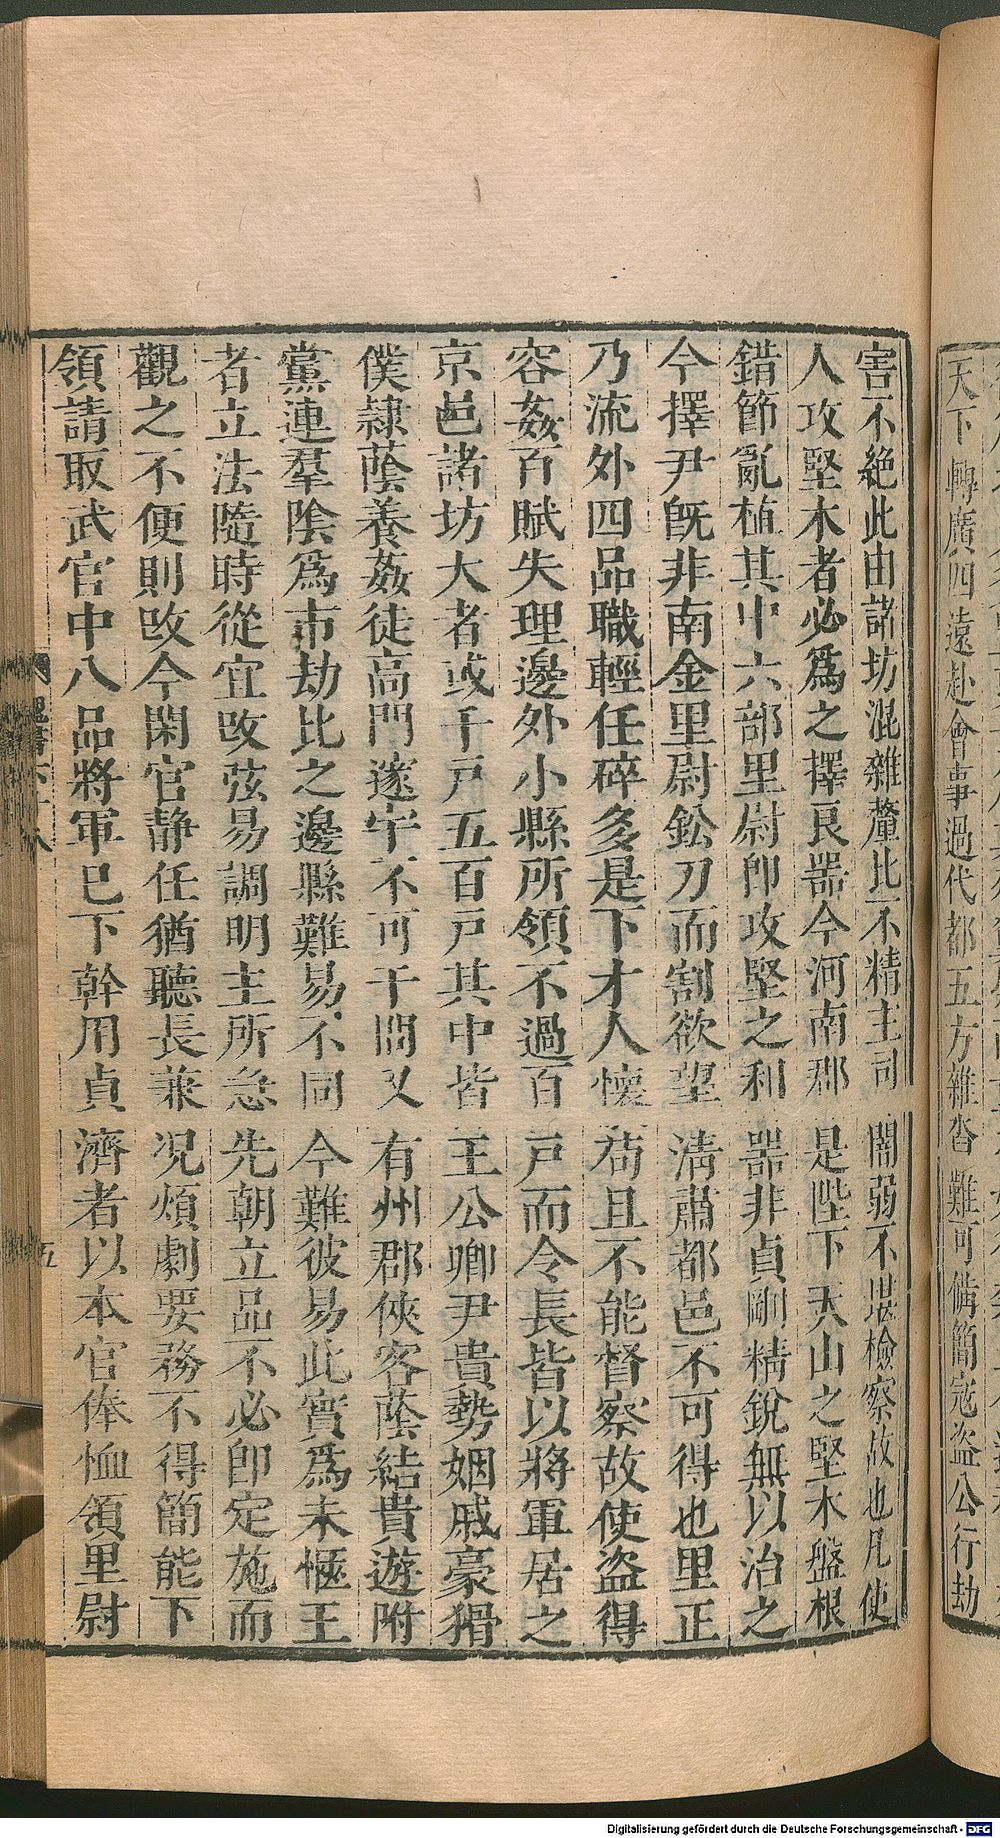 天下轉廣四遠赴會事過代都五方雜沓難可備簡寇盜公行劫
害不絕此由諸坊混雜釐比不精主司闇弱不堪檢察故也凡使
人攻堅木者必爲之擇良噐今河南郡是陛下天山之堅木盤根
錯節亂植其中六部里尉卽攻堅之利噐非貞剛精銳無以治之
今擇尹旣非南金里尉鈆刀而割欲望淸肅都邑不可得也里正
乃流外四品職輕任碎多是下才人懷苟且不能督察故使盜得
容姦百賦失理邊外小縣所領不過百戸而令長皆以將軍居之
京邑諸坊大者或千戸五百戸其中皆王公卿尹貴勢姻戚豪猾
僕隸蔭養姦徒高門邃宇不可干問又有州郡俠客蔭結貴遊附
黨連羣陰爲市劫比之邊縣難易不同今難彼易此實爲未愜王
者立法隨時從宜改弦易調明主所急先朝立品不必卽定施而
觀之不便則改今閑官静任猶聽長兼况煩劇要務不得簡能下
領請取武官中八品將軍已下幹用貞濟者以本官俸恤領里尉
五
Digitalisierung gefördert durch die Deutsche Forschungsgemeinschaft - DFG